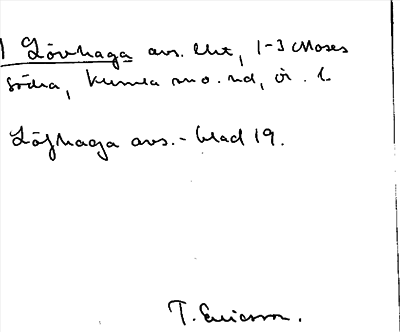 1 Lövhaga avs. lht, 1-3 Moses
södra, Kumla sn o. hd, Ör. l.
Löfhaga avs. - blad 19.
T. Ericsson.